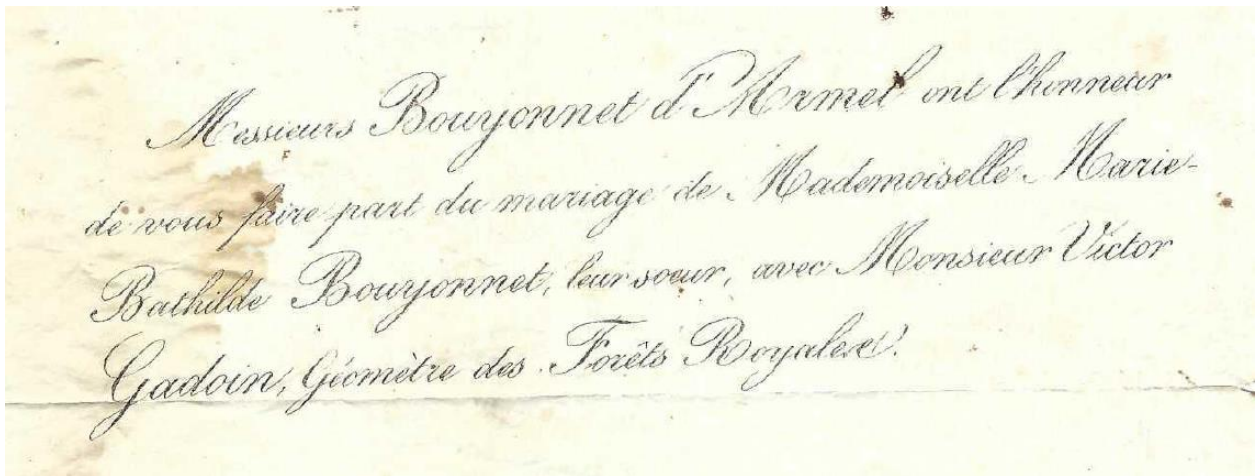 Messieurs Bouyonnet d'Armel ont l'honneur
de vous faire part du mariage de Mademoiselle Marie-
Bathilde Bouyonnet, leur sœur, avec Monsieur Victor
Gadoin, Géomètre des Forêts Royales.